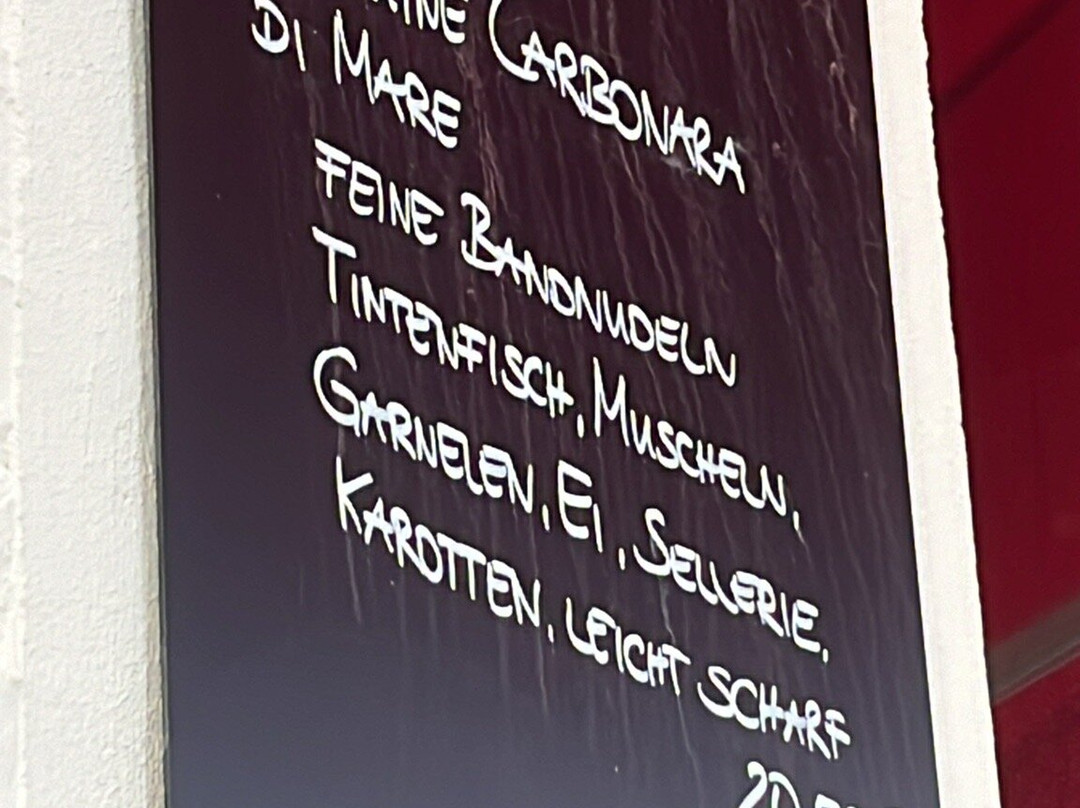 CARBONARA
DI MARE
FEINE BANDNUDELN
TINTENFISCH, MUSCHELN,
GARNELEN, EI, SELLERIE,
KAROTTEN, LEICHT SCHARF